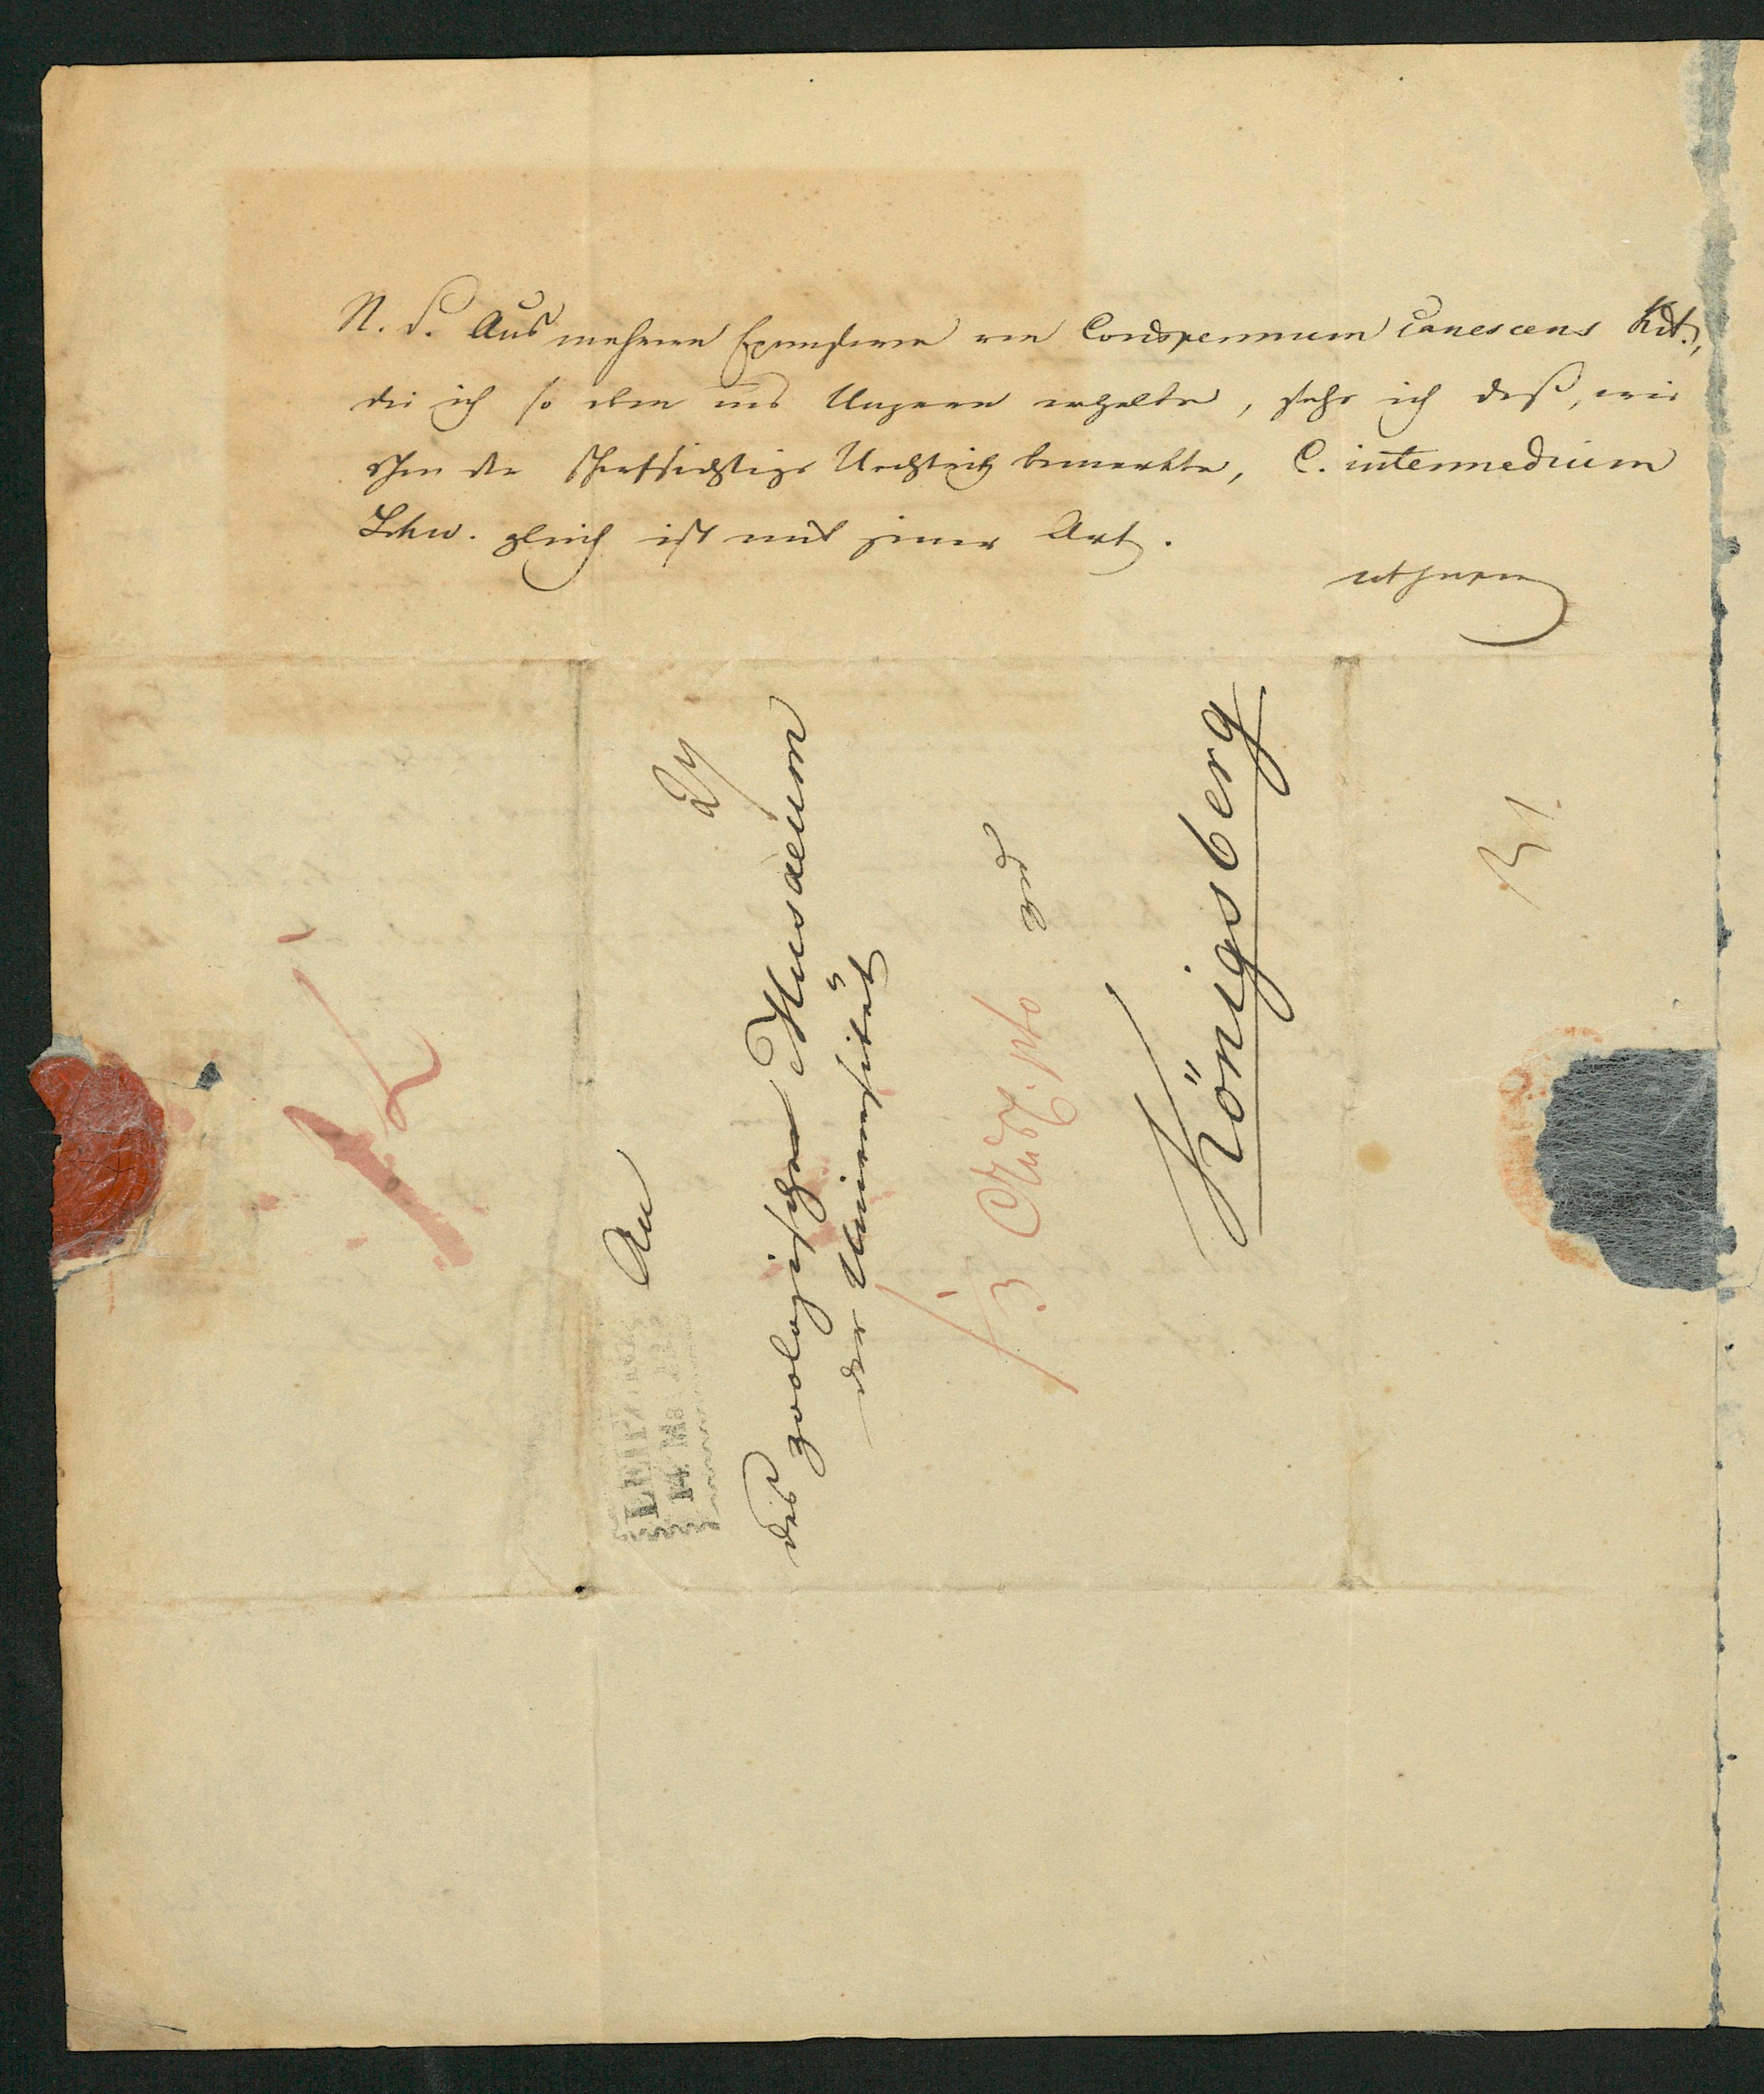 N. S. Aus mehreren Exemplaren von Corispermum canescens Kit.,
die ich so eben aus Ungarn erhalte, sehe ich daß, wie
schon der scharfsichtige Uechtritz bemerkte, C. intermedium
Schw. gleich ist mit jener Art.
An
das zoologische Musaeum
der Universität
zu
Königsberg
LEIPZIG
14. Mai